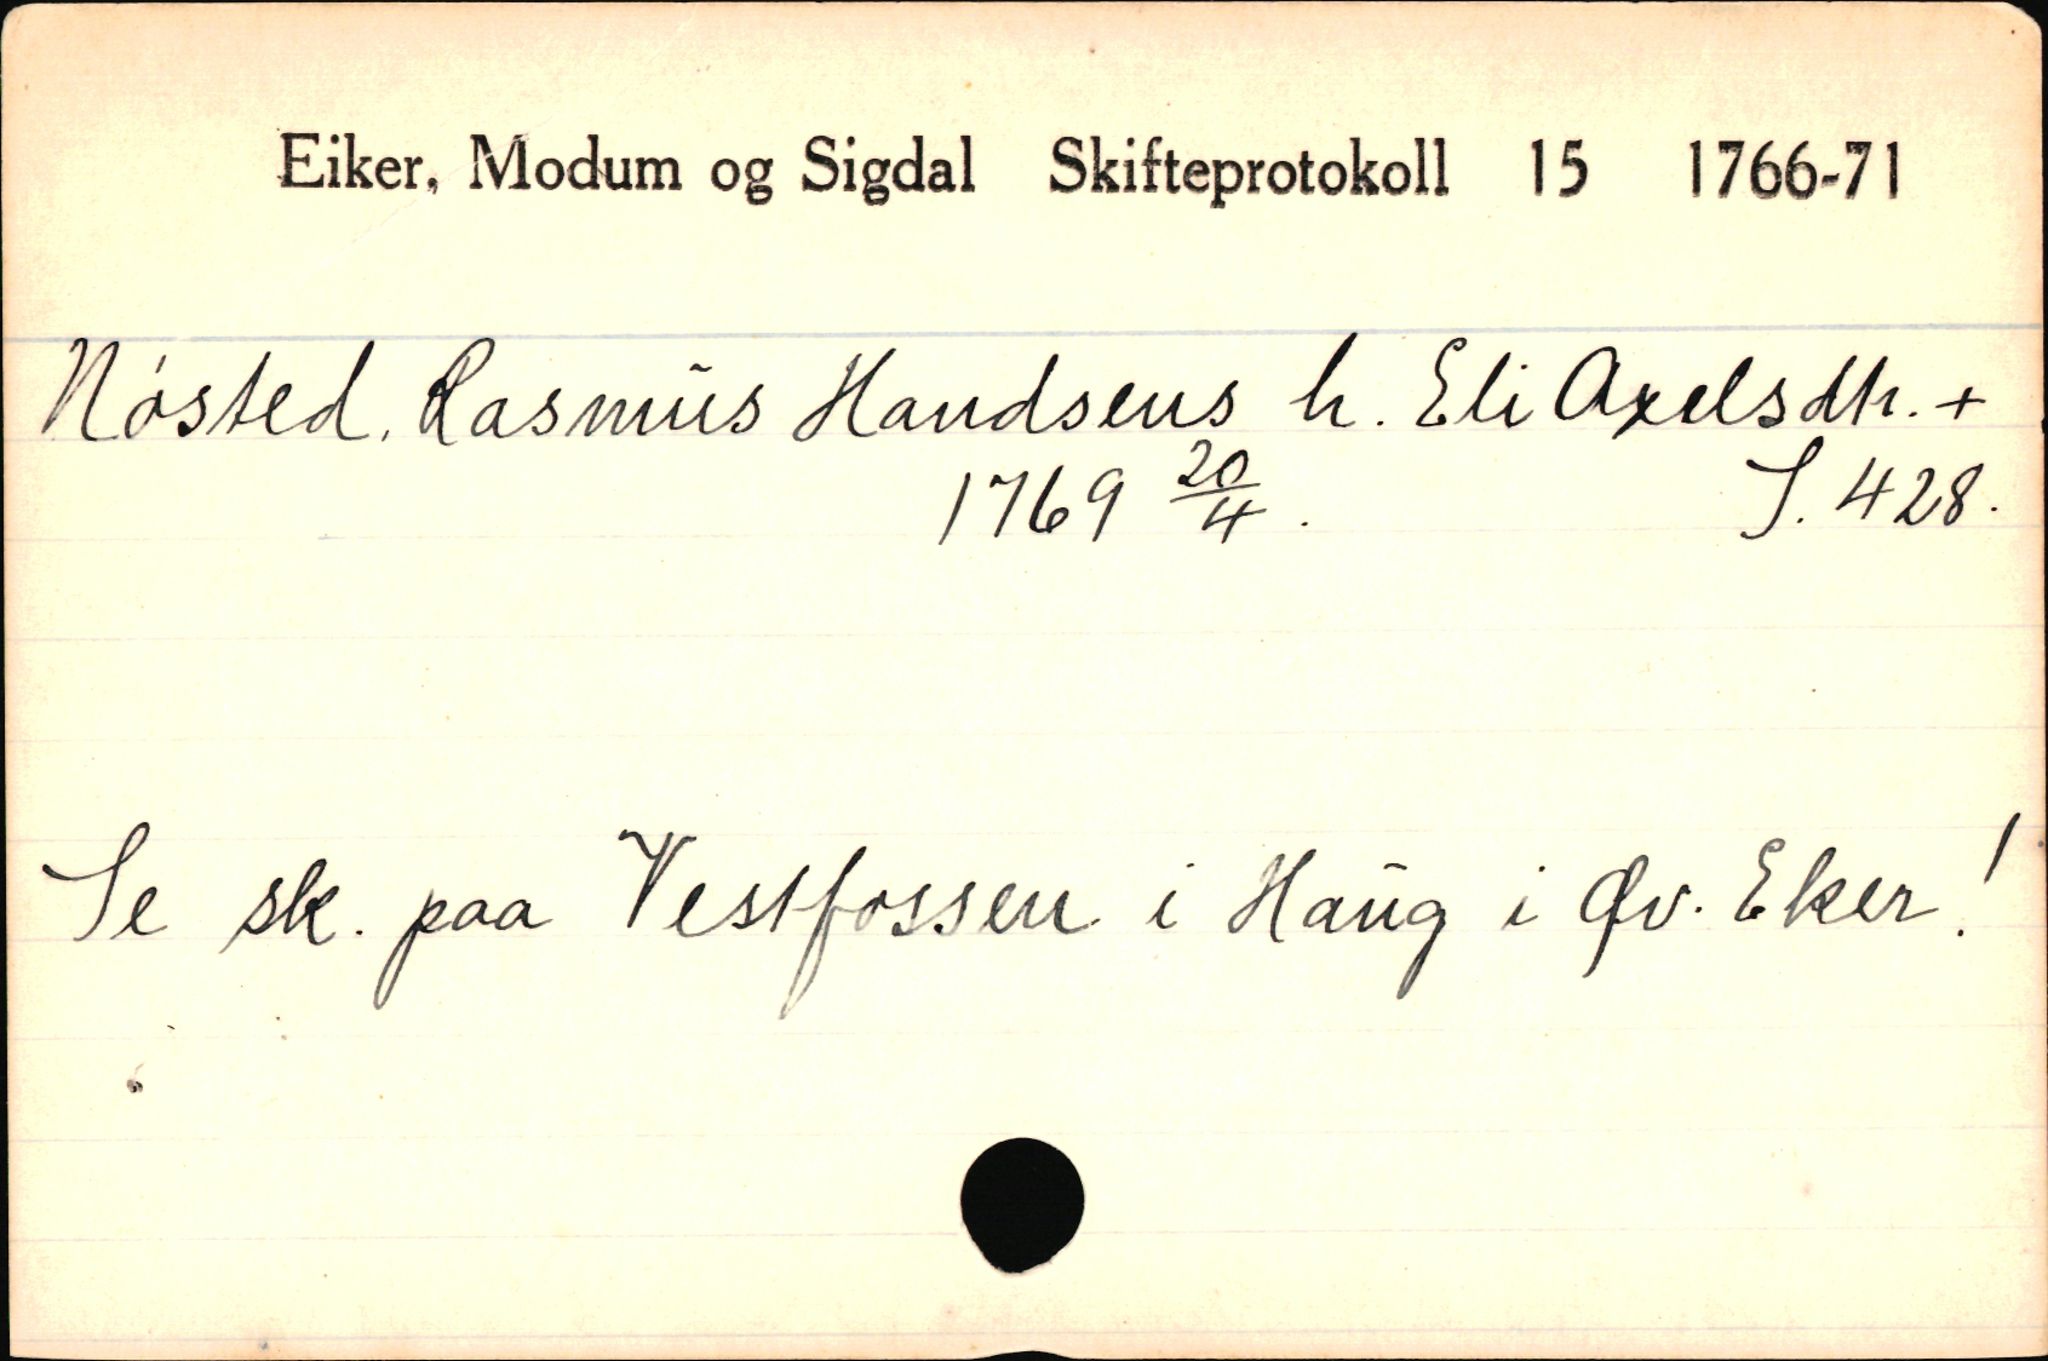 Eiker, Modum og Sigdal Skifteprotokoll 15 1766-71
Nøsted, Rasmus Handsens h. Eli Axelsdtr. +
1769 20/4. S. 428.
Se sk. paa Vestfossen i Haug i Øv. Eker!